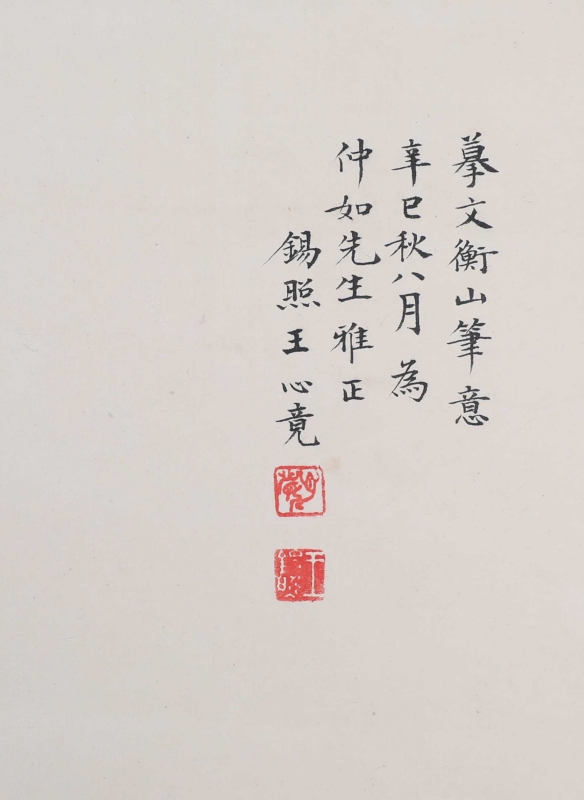 摹文衡山筆意
辛巳秋八月為
仲如先生雅正
錫照王心竟